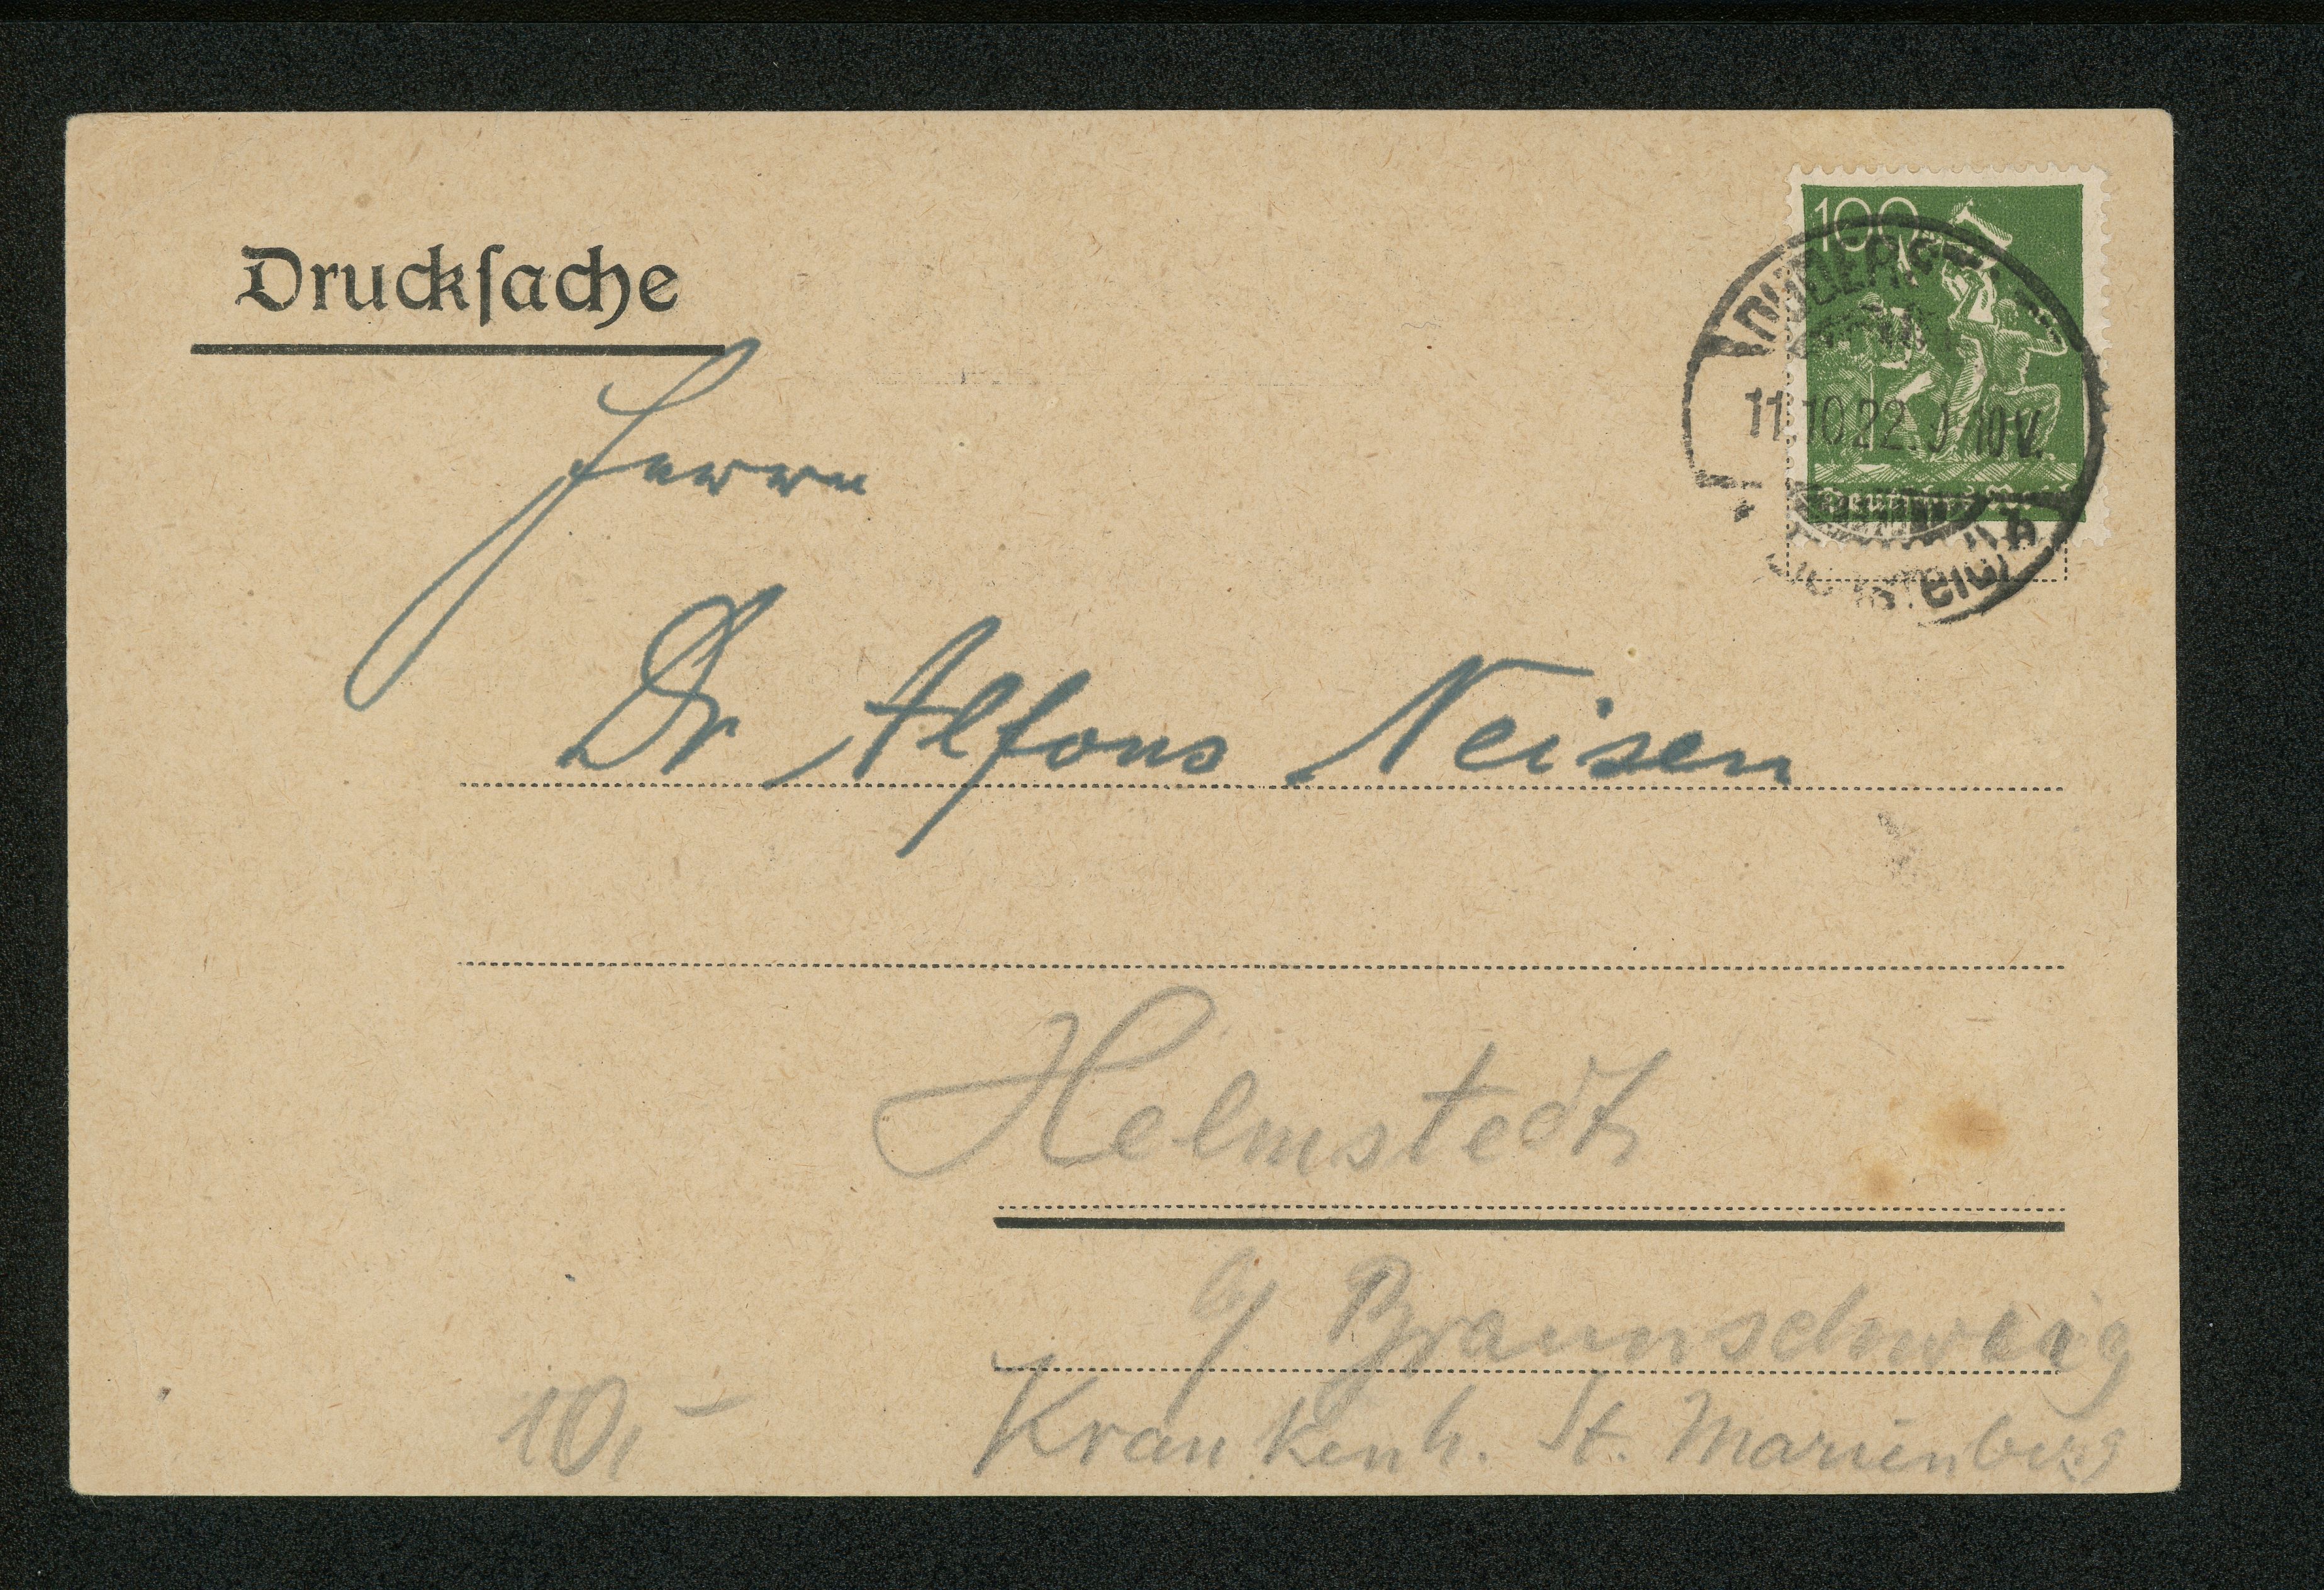 Drucksache
100
11.10.22. 9-10 V.
Deutsches Reich
Herrn
Dr Alfons Neisen
Helmstedt
b/ Braunschweig
10,- Krankenh. St. Marienberg